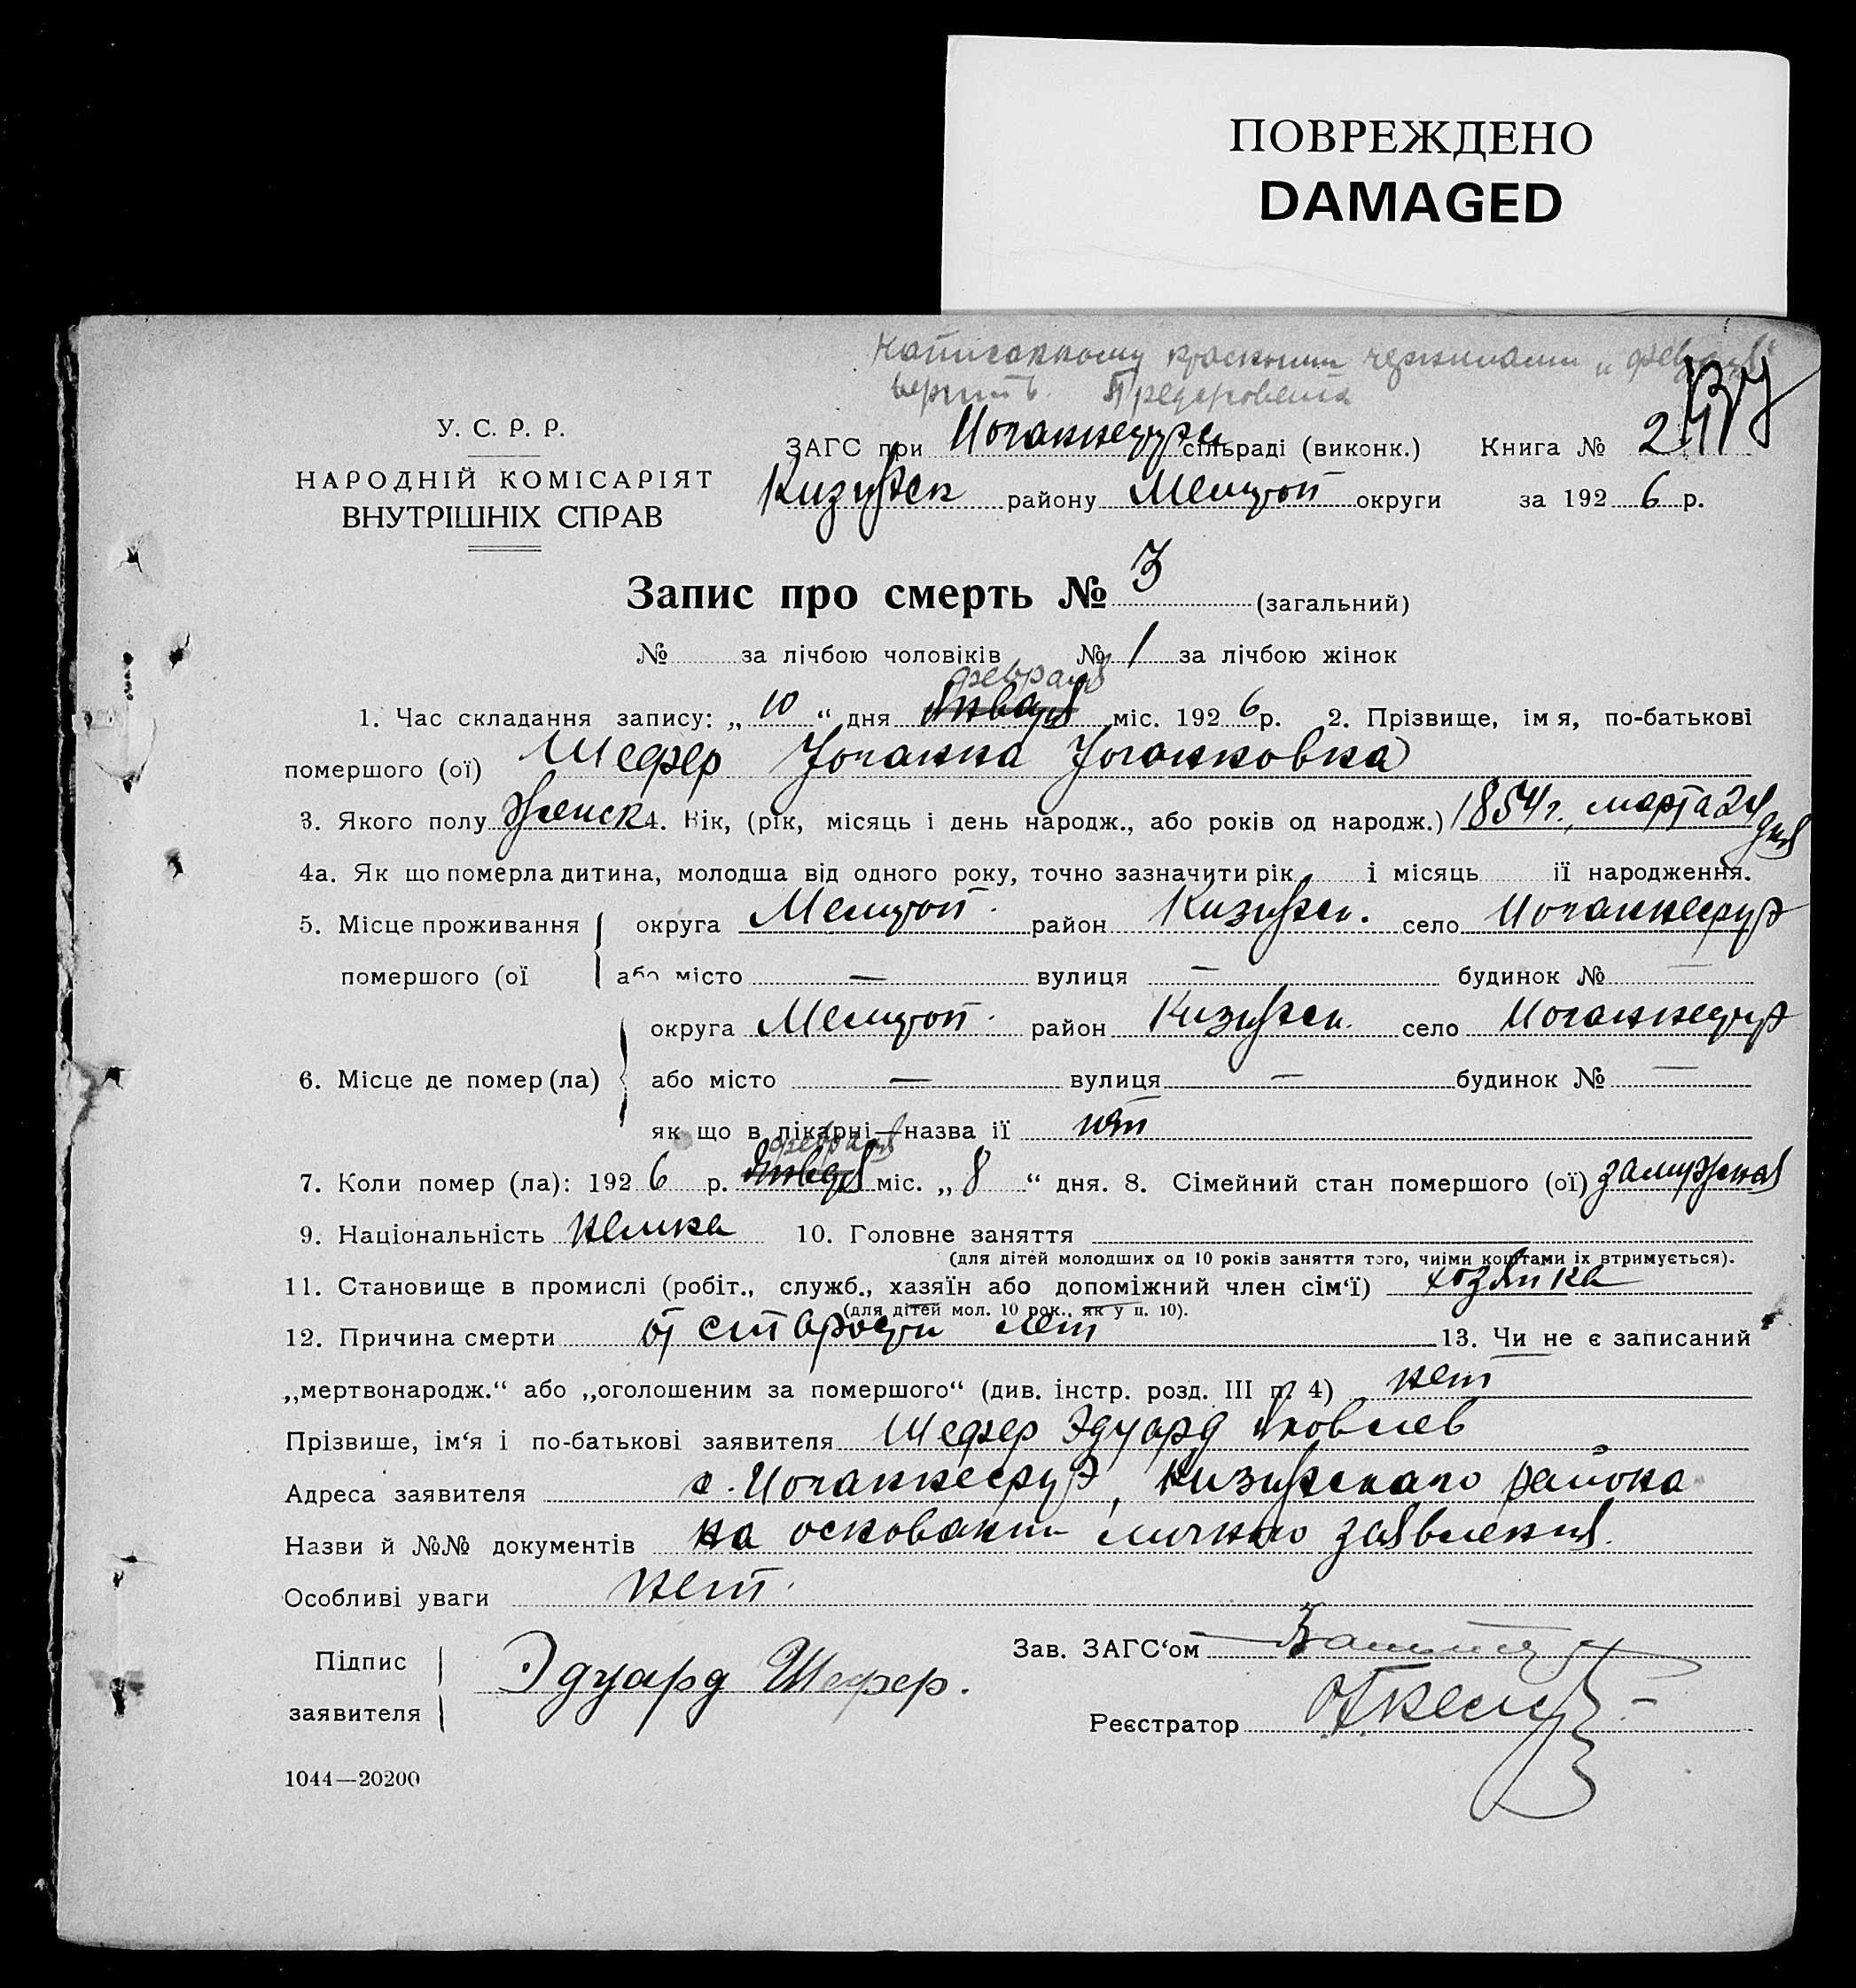 ПОВРЕЖДЕНО
DAMAGED
написанному красными чернилами „февраля“
верить.
У. С. Р. Р.
НАРОДНІЙ КОМІСАРІЯТ
ВНУТРІШНІХ СПРАВ
ЗАГС при Иоганнесруж сільраді (виконк.) Книга № 2
Кизияск району Мелитоп округи за 192 6 р.
Запис про смерть № 3 (загальний)
№ за лічбою чоловіків № 1 за лічбою жінок
февраля
1. Час складання запису: „ 10 “ дня января міс. 192 6 р. 2. Прізвище, імя, по-батькові
помершого (ої) Шефер Иоганна Иоганновна
3. Якого полу женск 4. Вік, (рік, місяць і день народж., або років од народж.) 1854 г., марта 24 дня
4а. Як що померла дитина, молодша від одного року, точно зазначити рік і місяць її народження.
5. Місце проживання округа Мелитоп. район село Иоганнесруэ
помершого (ої або місто — вулиця — будинок № —
округа Мелитоп. район село Иоганнесруэ
6. Місце де помер (ла) або місто — вулиця — будинок № —
як що в лікарні—назва її нет
февраля
7. Коли помер (ла): 192 6 р. января міс. „ 8 “ дня. 8. Сімейний стан помершого (ої) замужная
9. Національність немка 10. Головне заняття
(для дітей молодших од 10 років заняття того, чиїми коштами їх втримується).
11. Становище в промислі (робіт., служб., хазяїн або допоміжний член сім‘ї) хозяйка
(для дітей мол. 10 рок., як у п. 10).
12. Причина смерти от старости лет 13. Чи не є записаний
„мертвонародж.“ або „оголошеним за помершого“ (див. інстр. розд. III п. 4) нет
Прізвише, ім‘я і по-батькові заявителя Шефер Эдуард Яковлев
Адреса заявителя с. Иоганнесруэ, района
Назви й №№ документів на основании личного заявления.
Особливі уваги нет.
Підпис
заявителя Эдуард Шефер.
Зав. ЗАГС‘ом
Реєстратор
1044—20200